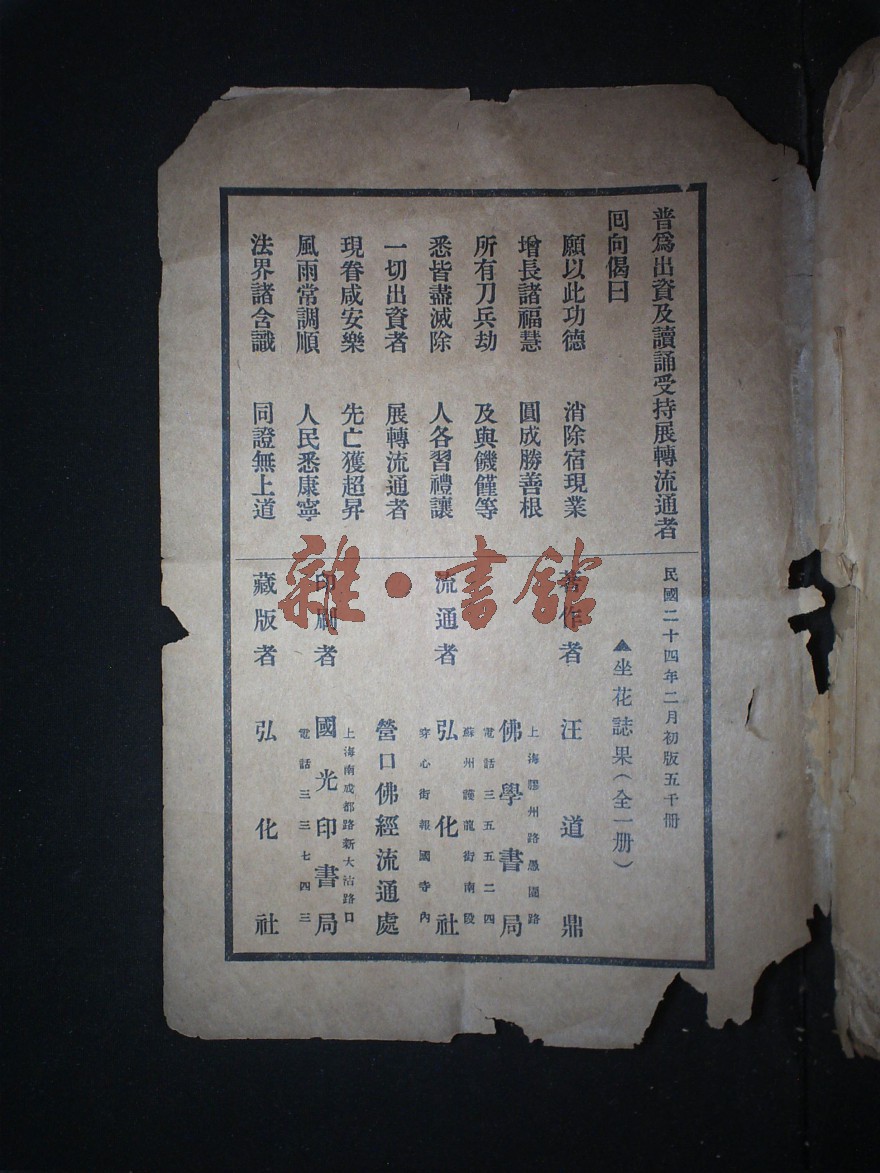 普爲出資及讀誦受持展轉流通者
囘向偈曰
願以此功德　消除宿現業
增長諸福慧　圓成勝善根
所有刀兵劫　及與饑饉等
悉皆盡滅除　人各習禮讓
一切出資者　展轉流通者
現眷咸安樂　先亡獲超昇
風雨常調順　人民悉康寧
法界諸含識　同證無上道
民國二十四年二月初版五千冊
▲坐花誌果(全一册)
著作者　汪道鼎
上海膠州路愚園路
佛學書局
電話三五五二四
蘇州護龍街南段
流通者　弘化社
穿心街報國寺內
營口佛經流通處
上海南成都路新大沽路口
印刷者　國光印書局
電話三三七四三
藏版者　弘化社
雜·書館